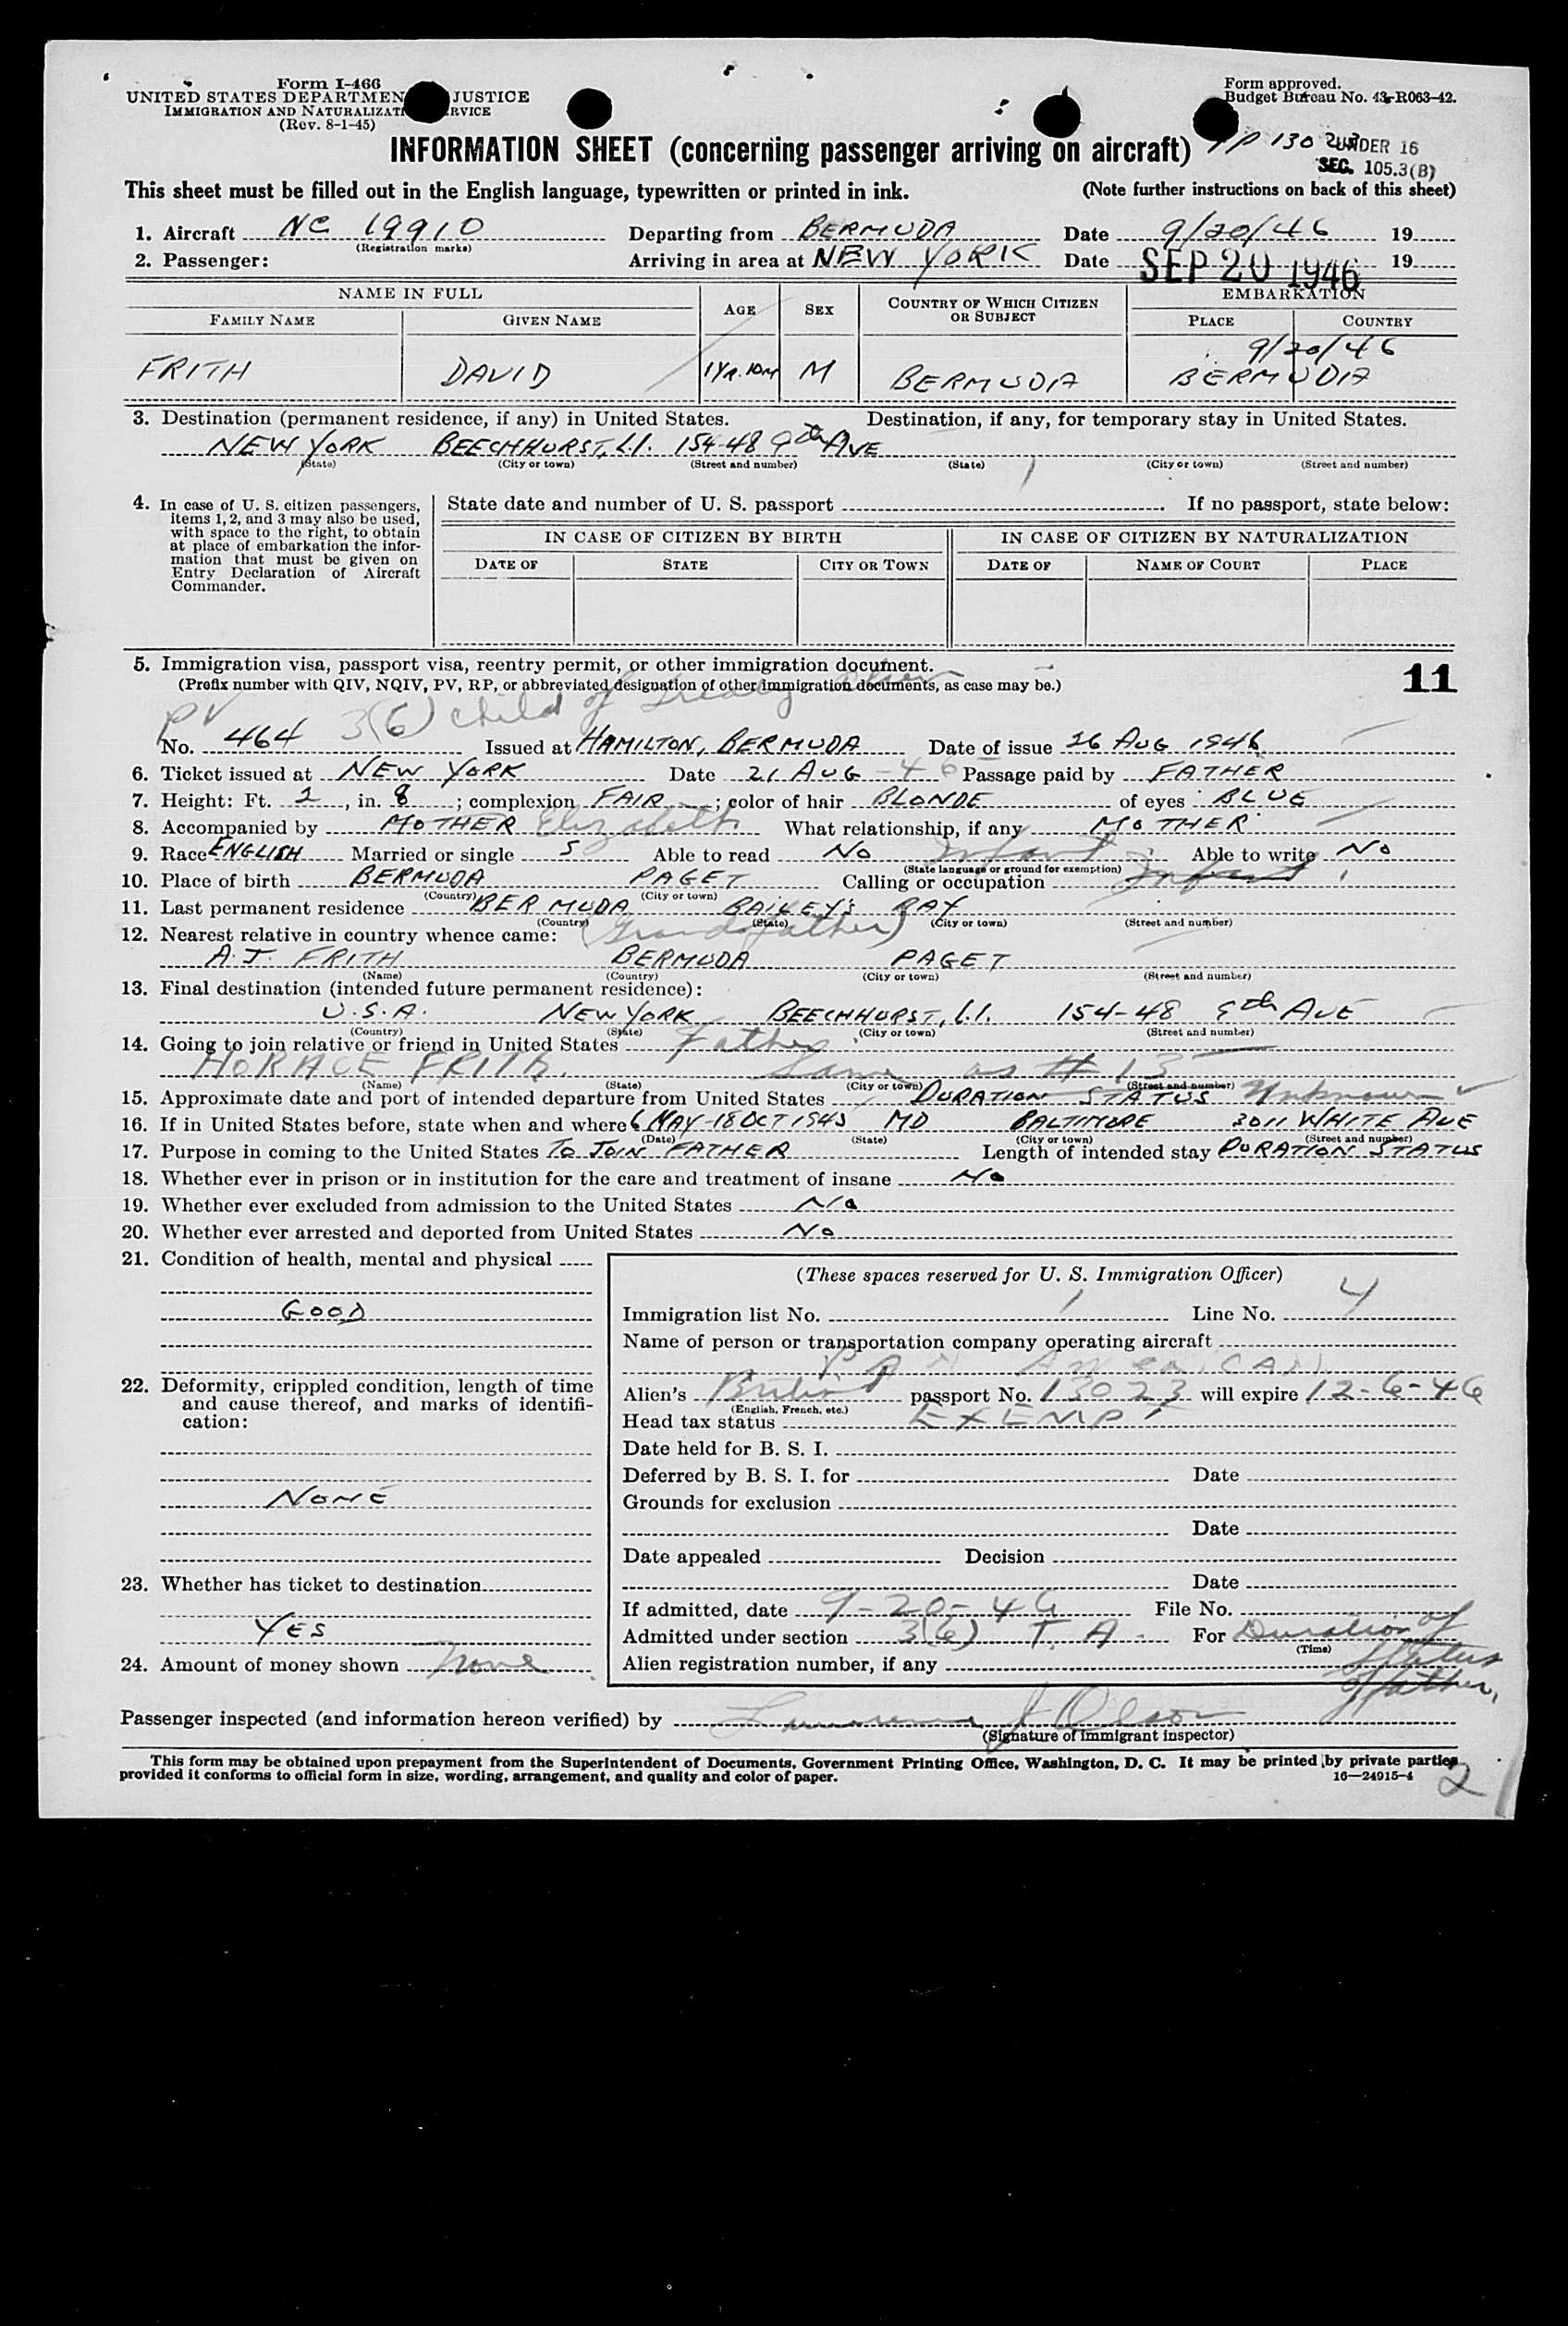 Form I-466
UNITED STATES DEPARTMEN JUSTICE
IMMIGRATION AND NATURALIZATI RVICE
(Rev. 8-1-45)
Form approved.
Budget Bureau No. 43-R063-42.
INFORMATION SHEET (concerning passenger arriving on aircraft)
PP 130
UNDER 16
SEC. 105.3(B)
This sheet must be filled out in the English language, typewritten or printed in ink. (Note further instructions on back of this sheet)
1. Aircraft NC 19910 Departing from BERMUDA Date 9/20/46 19
(Registration marks)
2. Passenger: Arriving in area at NEW YORK Date SEP 20 1946 19
NAME IN FULL AGE SEX COUNTRY OF WHICH CITIZEN OR SUBJECT EMBARKATION
FAMILY NAME GIVEN NAME PLACE COUNTRY
9/20/46
FRITH DAVID 1 YR. 10M M BERMUDA BERMUDA
3. Destination (permanent residence, if any) in United States. Destination, if any, for temporary stay in United States.
NEW YORK BEECHHURST, L.I. 154-48 9th AVE
(State) (City or town) (Street and number) (State) (City or town) (Street and number)
4. In case of U. S. citizen passengers, items 1, 2, and 3 may also be used, with space to the right, to obtain at place of embarkation the information that must be given on Entry Declaration of Aircraft Commander.
State date and number of U. S. passport . If no passport, state below:
IN CASE OF CITIZEN BY BIRTH IN CASE OF CITIZEN BY NATURALIZATION
DATE OF STATE CITY OR TOWN DATE OF NAME OF COURT PLACE
5. Immigration visa, passport visa, reentry permit, or other immigration document.
11
(Prefix number with QIV, NQIV, PV, RP, or abbreviated designation of other immigration documents, as case may be.)
PV 3(6) child of treaty
No. 464 Issued at HAMILTON, BERMUDA Date of issue 26 AUG 1946
6. Ticket issued at NEW YORK Date 21 AUG - 46 Passage paid by FATHER
7. Height: Ft. 2, in. 8; complexion FAIR; color of hair BLONDE of eyes BLUE
8. Accompanied by MOTHER Elizabeth What relationship, if any MOTHER
9. Race ENGLISH Married or single S Able to read No Infant Able to write No
(State language or ground for exemption)
10. Place of birth BERMUDA PAGET Calling or occupation Infant
(Country) (City or town)
11. Last permanent residence BERMUDA BAILEY'S BAY
(Country) (State) (City or town) (Street and number)
12. Nearest relative in country whence came: (Grandfather)
A.J. FRITH BERMUDA PAGET
(Name) (Country) (City or town) (Street and number)
13. Final destination (intended future permanent residence):
U.S.A. NEW YORK BEECHHURST, L.I. 154-48 9th AVE
(Country) (State) (City or town) (Street and number)
14. Going to join relative or friend in United States Father
HORACE FRITH. Same as # 13
(Name) (State) (City or town) (Street and number)
15. Approximate date and port of intended departure from United States DURATION STATUS Unknown
16. If in United States before, state when and where 6 MAY-18 OCT 1945 MD BALTIMORE 3011 WHITE AVE
(Date) (State) (City or town) (Street and number)
17. Purpose in coming to the United States TO JOIN FATHER Length of intended stay DURATION STATUS
18. Whether ever in prison or in institution for the care and treatment of insane No
19. Whether ever excluded from admission to the United States No
20. Whether ever arrested and deported from United States No
21. Condition of health, mental and physical
GOOD
22. Deformity, crippled condition, length of time and cause thereof, and marks of identification:
NONE
23. Whether has ticket to destination
YES
24. Amount of money shown None
(These spaces reserved for U. S. Immigration Officer)
Immigration list No. 1 Line No. 4
Name of person or transportation company operating aircraft
PAN AMERICAN
Alien's British passport No. 13023 will expire 12-6-46
(English, French, etc.)
Head tax status EXEMPT
Date held for B. S. I.
Deferred by B. S. I. for Date
Grounds for exclusion
Date
Date appealed Decision
Date
If admitted, date 9-20-46 File No.
Admitted under section 3(6) T. A. For Duration of Status of father.
(Time)
Alien registration number, if any
Passenger inspected (and information hereon verified) by J Olson
(Signature of immigrant inspector)
This form may be obtained upon prepayment from the Superintendent of Documents, Government Printing Office, Washington, D. C. It may be printed by private parties
provided it conforms to official form in size, wording, arrangement, and quality and color of paper. 16—24915-4
2